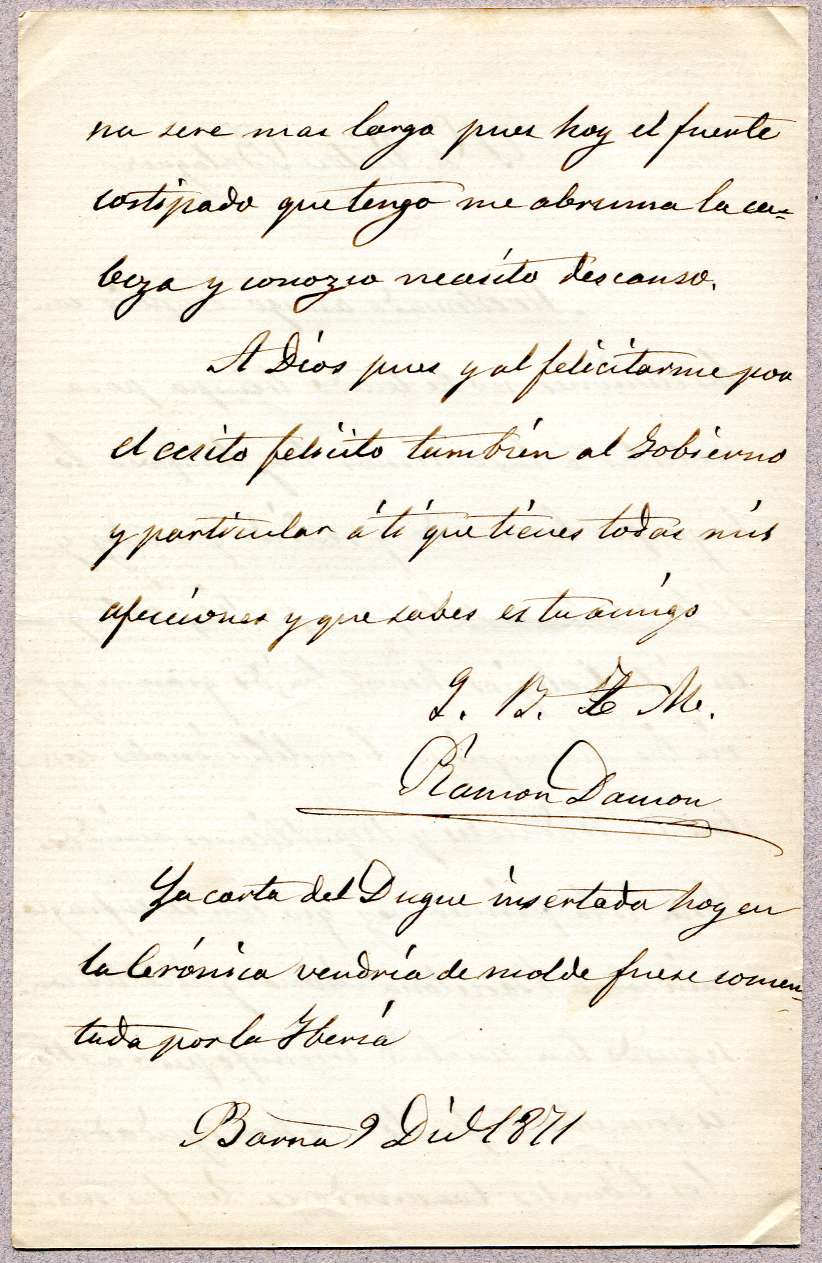 no sere mas largo pues hoy el fuerte
costipado que tengo me abruma la ca=
beza y conozco necesito descanso.
A Dios pues y al felicitarme por
el ecsito felicito tambien al Gobierno
y particular á ti que tienes todas mis
afecciones y que sabes es tu amigo
Q. B. T. M.
Ramon Damon
La carta del Duque insertada hoy en
la Crónica vendría de molde fuese comen=
tada por la Iberia
Barna 9 Dic 1871